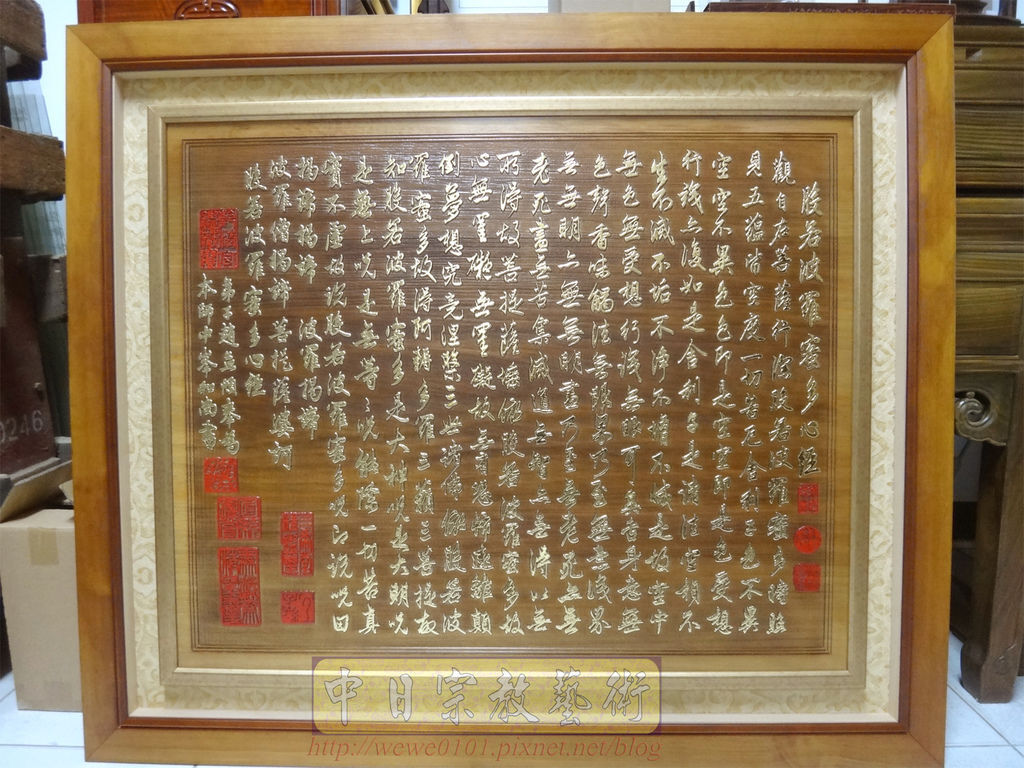 般若波羅蜜多心經
觀自在菩薩行深般若波羅蜜多時照
見五蘊皆空度一切苦厄舍利子色不異
空空不異色色即是空空即是色受想
行識亦復如是舍利子是諸法空相不
生不滅不垢不淨不增不減是故空中
無色無受想行識無眼耳鼻舌身意無
色聲香味觸法無眼界乃至無意識界
無無明亦無無明盡乃至無老死亦無
老死盡無苦集滅道無智亦無得以無
所得故菩提薩埵依般若波羅蜜多故
心無罣礙無罣礙故無有恐怖遠離顛
倒夢想究竟涅槃三世諸佛依般若波
羅蜜多故得阿耨多羅三藐三菩提故
知般若波羅蜜多是大神呪是大明呪
是無上呪是無等〻呪能除一切苦真
實不虛故說般若波羅蜜多呪即說呪曰
揭諦揭諦 波羅揭諦
波羅僧揭諦 菩提薩婆訶
般若波羅蜜多心經
弟子趙孟頫奉為
本師中峯和尚書
中日宗教藝術
http://wewe0101.pixnet.net/blog
0246